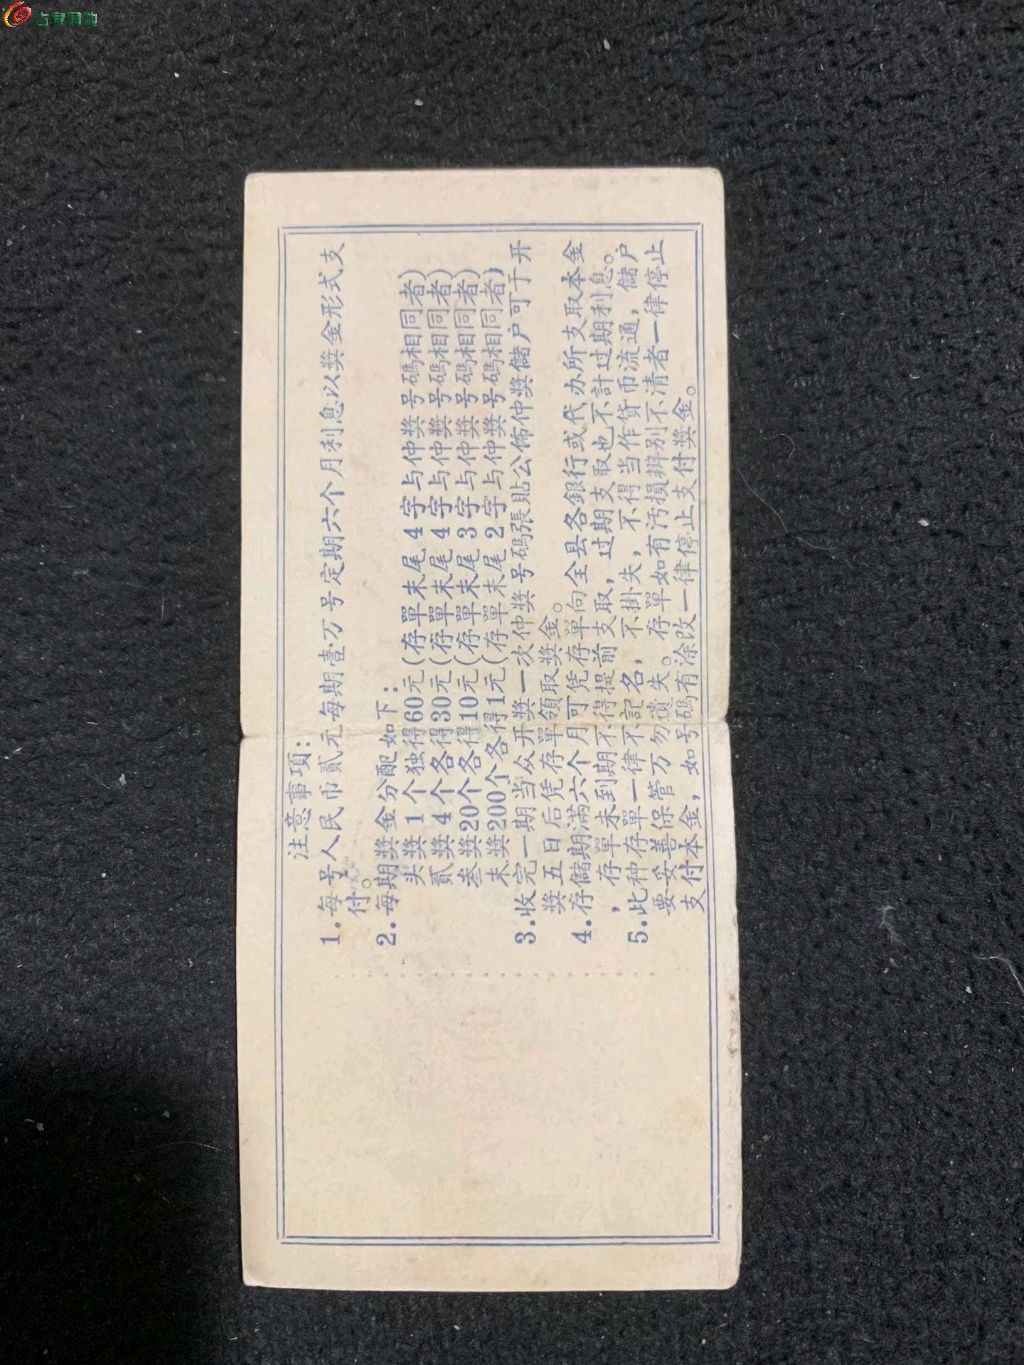 注意事項：
1. 每号人民币貳元每期壹万号定期六个月利息以奬金形式支
付。
2. 每期奬金分配如下：
头奬1个独得60元(存單末尾4字与仲奬号碼相同者)
貳奬4个各得30元(存單末尾4字与仲奬号碼相同者)
叁奬20个各得10元(存單末尾3字与仲奬号碼相同者)
末奬200个各得1元(存單末尾2字与仲奬号碼相同者)
3. 收完一期当众开奬一次仲奬号碼張貼公佈仲奬儲户可于开
奬五日后凭存單領取奬金。
4. 存儲期滿六个月可凭存單向全县各銀行或代办所支取本金
，存單未到期不得提前支取，过期支取也不計过期利息。
5. 此种存單一律不記名，不掛失，不得当作貨币流通，儲户
要妥善保管万勿遺失。存單如有汚損辨别不清者一律停止
支付本金，如号碼有涂改一律停止支付奬金。
古泉園地